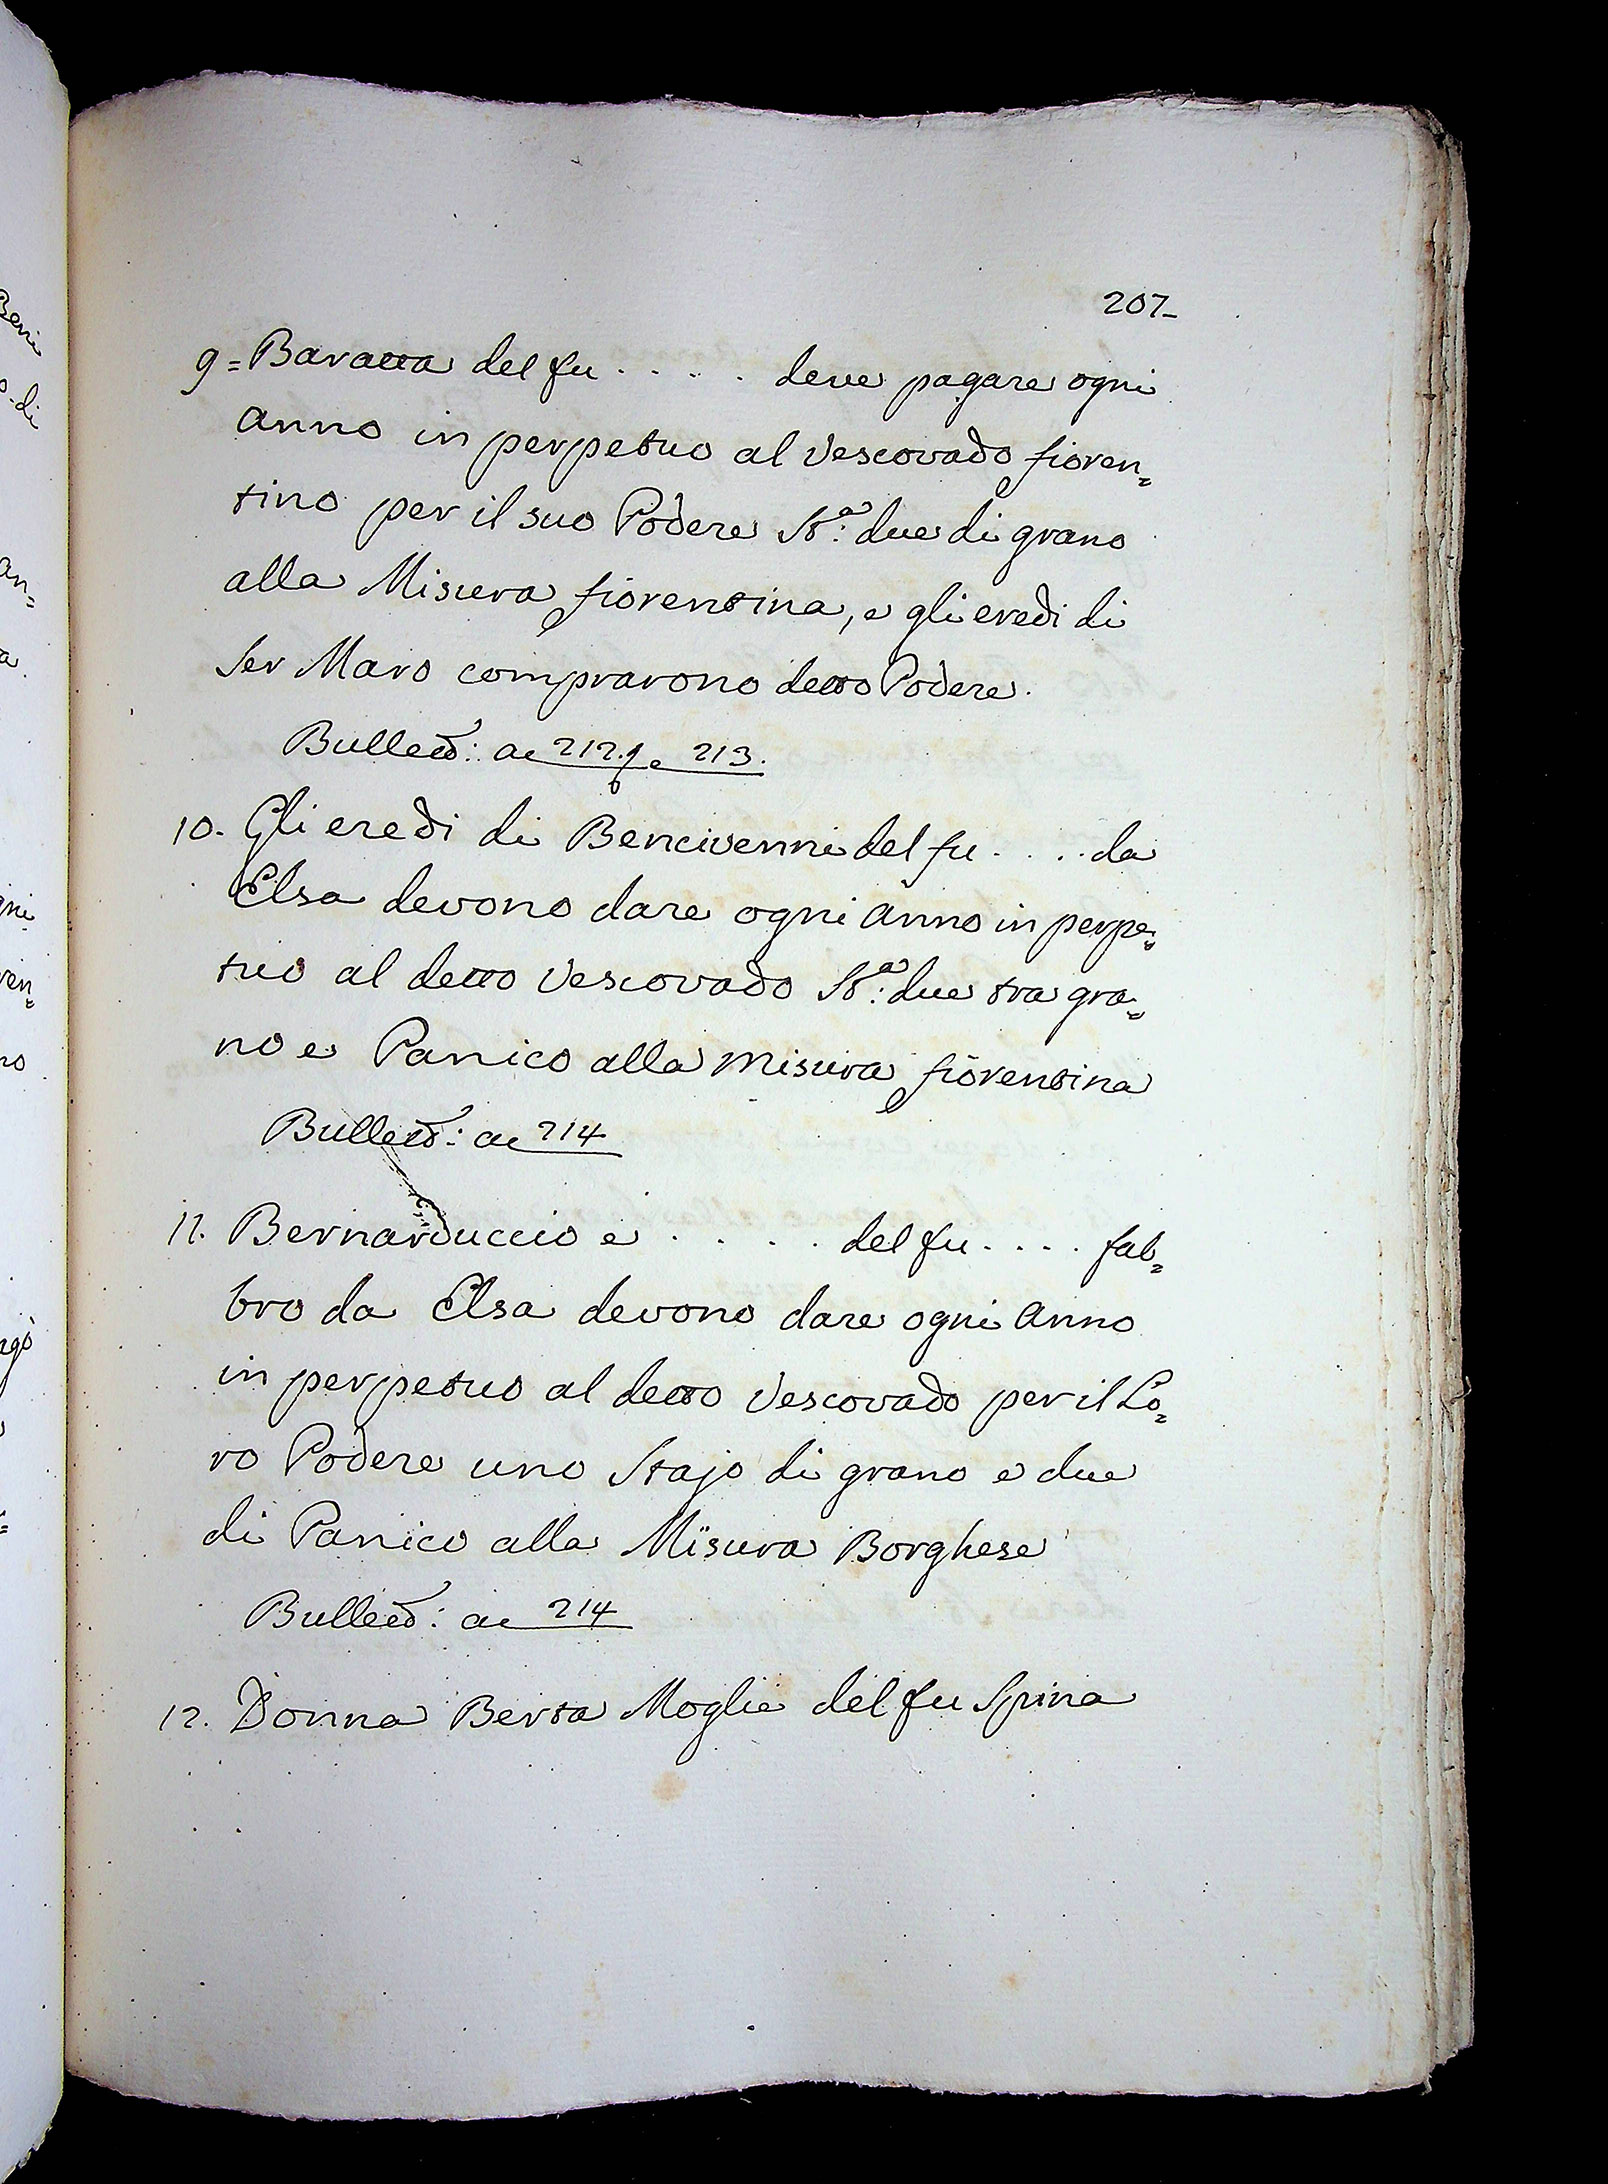 207-
9= Baratta del fu . . . . . deve pagare ogni
anno in perpetuo al Vescovado fioren=
tino per il suo Podere Stª: due di grano
alla Misura fiorentina, e gli eredi di
Ser Maro comprarono detto Podere.
Bullett: ac 212. e 213.
10. Gli eredi di Bencivenni del fu . . . . da
Elsa devono dare ogni anno in perpe=
tuo al detto Vescovado Stª: due tra gra=
no e Panico alla misura fiorentina
Bullett: ac 214
11. Bernarduccio e . . . . . del fu . . . . fab=
bro da Elsa devono dare ogni anno
in perpetuo al detto Vescovado per il Lo=
ro Podere uno Stajo di grano e due
di Panico alla Misura Borghese
Bullett: ac 214
12. Donna Berta Moglie del fu Spina